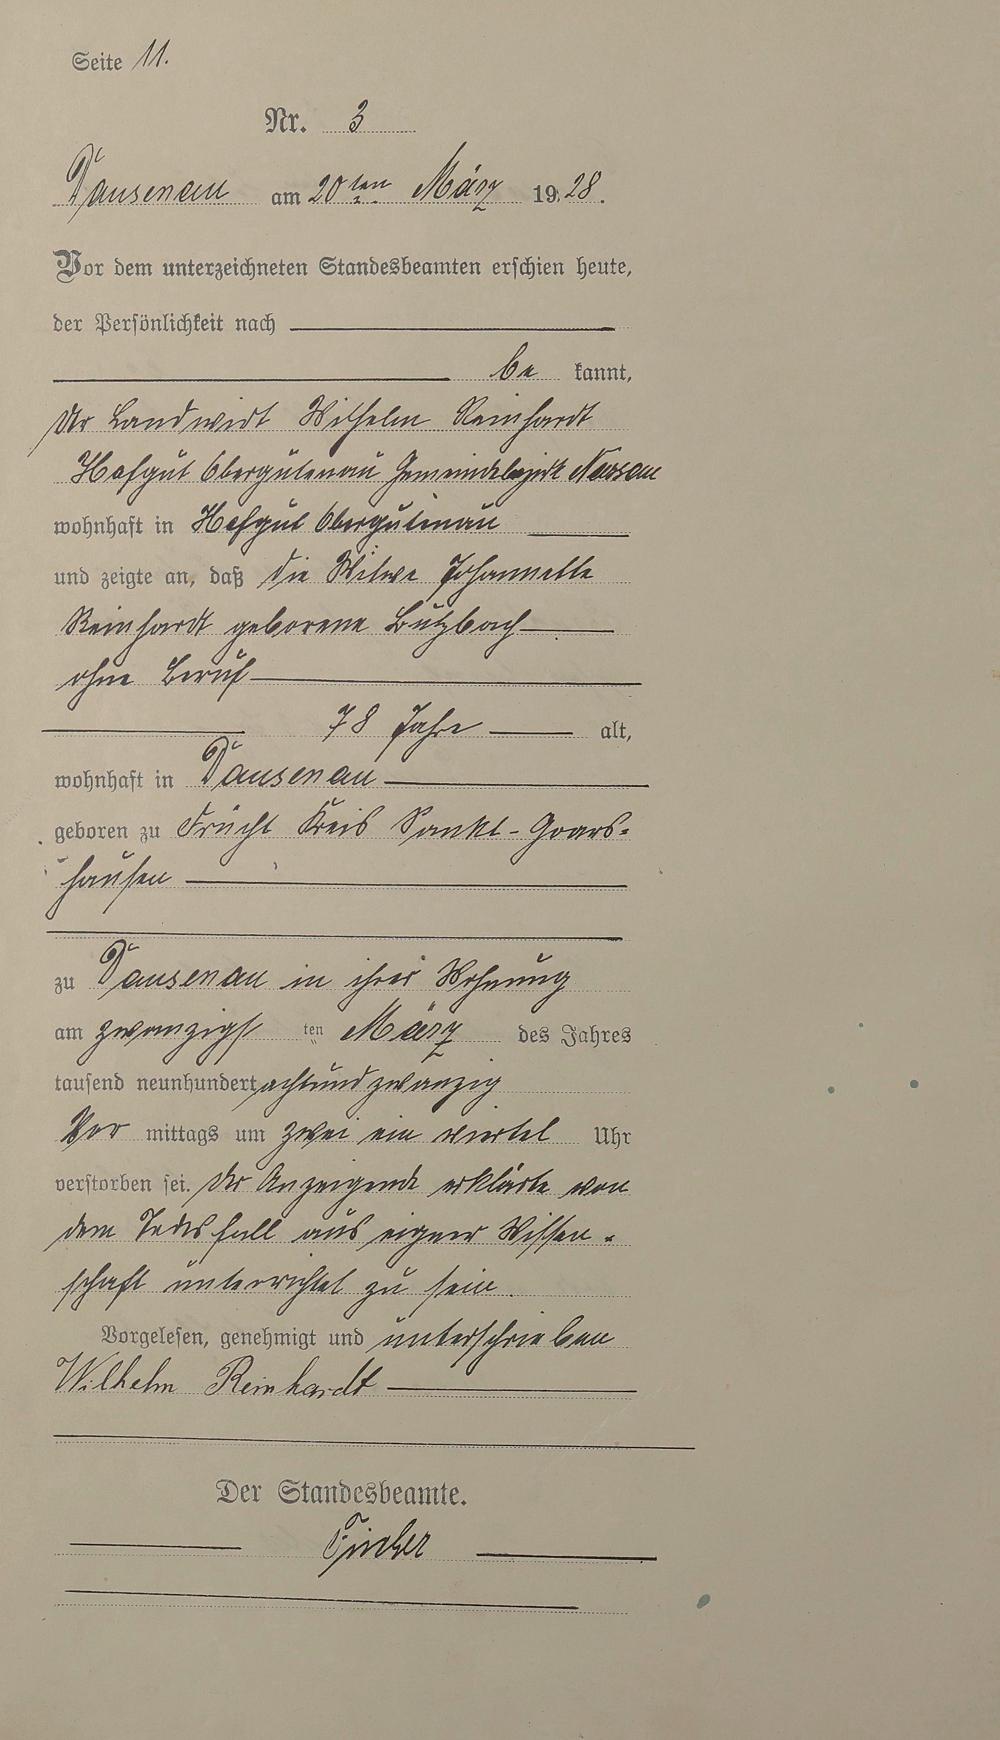 Seite 11.
Nr. 3
Dausenau am 20ten März 1928.
Vor dem unterzeichneten Standesbeamten erschien heute,
der Persönlichkeit nach
be kannt,
der Landwirt Wilhelm Reinhardt
Hofgut Obergutenau Gemeindebezirk Nassau
wohnhaft in Hofgut Obergutenau
und zeigte an, daß die Witwe Johannette
Reinhardt geborene Butzbach
ohne Beruf
78 Jahre alt,
wohnhaft in Dausenau
geboren zu Frücht Kreis Sankt-Goars-
hausen
zu Dausenau in ihrer Wohnung
am zwanzigs ten März des Jahres
tausend neunhundert achtundzwanzig
Vor mittags um zwei ein viertel Uhr
verstorben sei. Der Anzeigende erklärte von
dem Todesfall aus eigner Wissen-
schaft unterrichtet zu sein.
Vorgelesen, genehmigt und unterschrieben
Wilhelm Reinhardt
Der Standesbeamte.